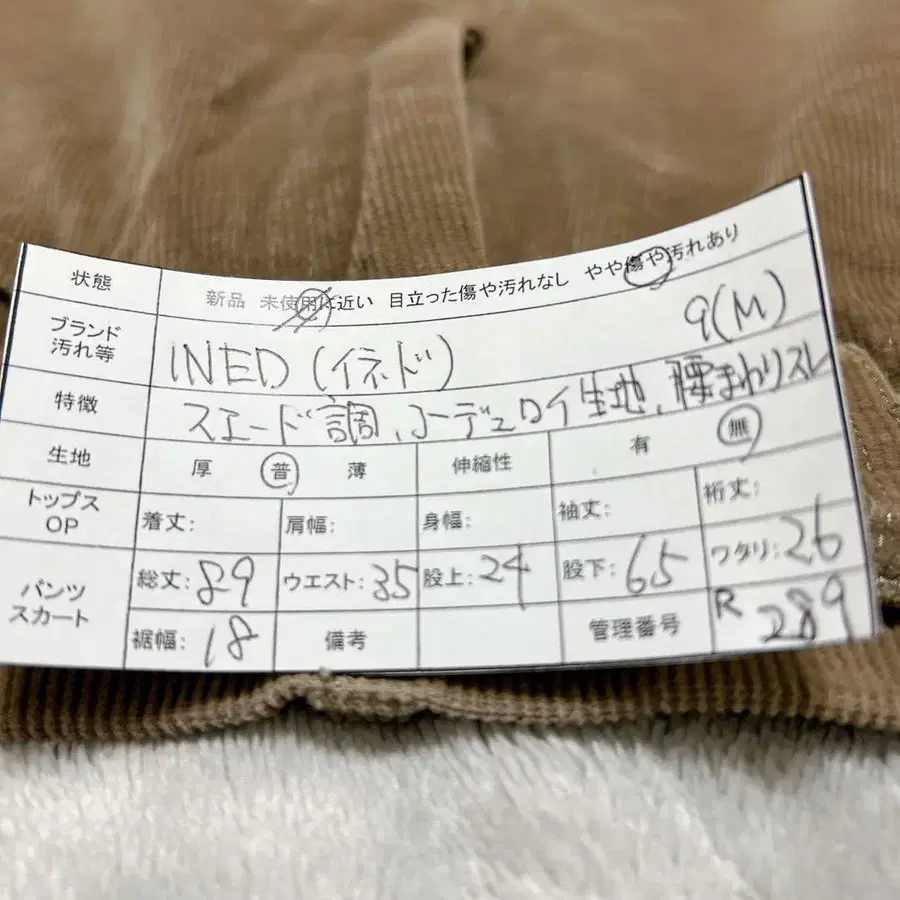 状態 新品 未使用に近い 目立った傷や汚れなし やや傷や汚れあり
ブランド 汚れ等 INED (イネド) 9(M)
特徴 スエード調、コーデュロイ生地、腰まわりスレ
生地 厚 普 薄 伸縮性 有 無
トップス OP 着丈: 肩幅: 身幅: 袖丈: 裄丈:
パンツ スカート 総丈: 89 ウエスト: 35 股上: 24 股下: 65 ワタリ: 26
裾幅: 18 備考 管理番号 R 289